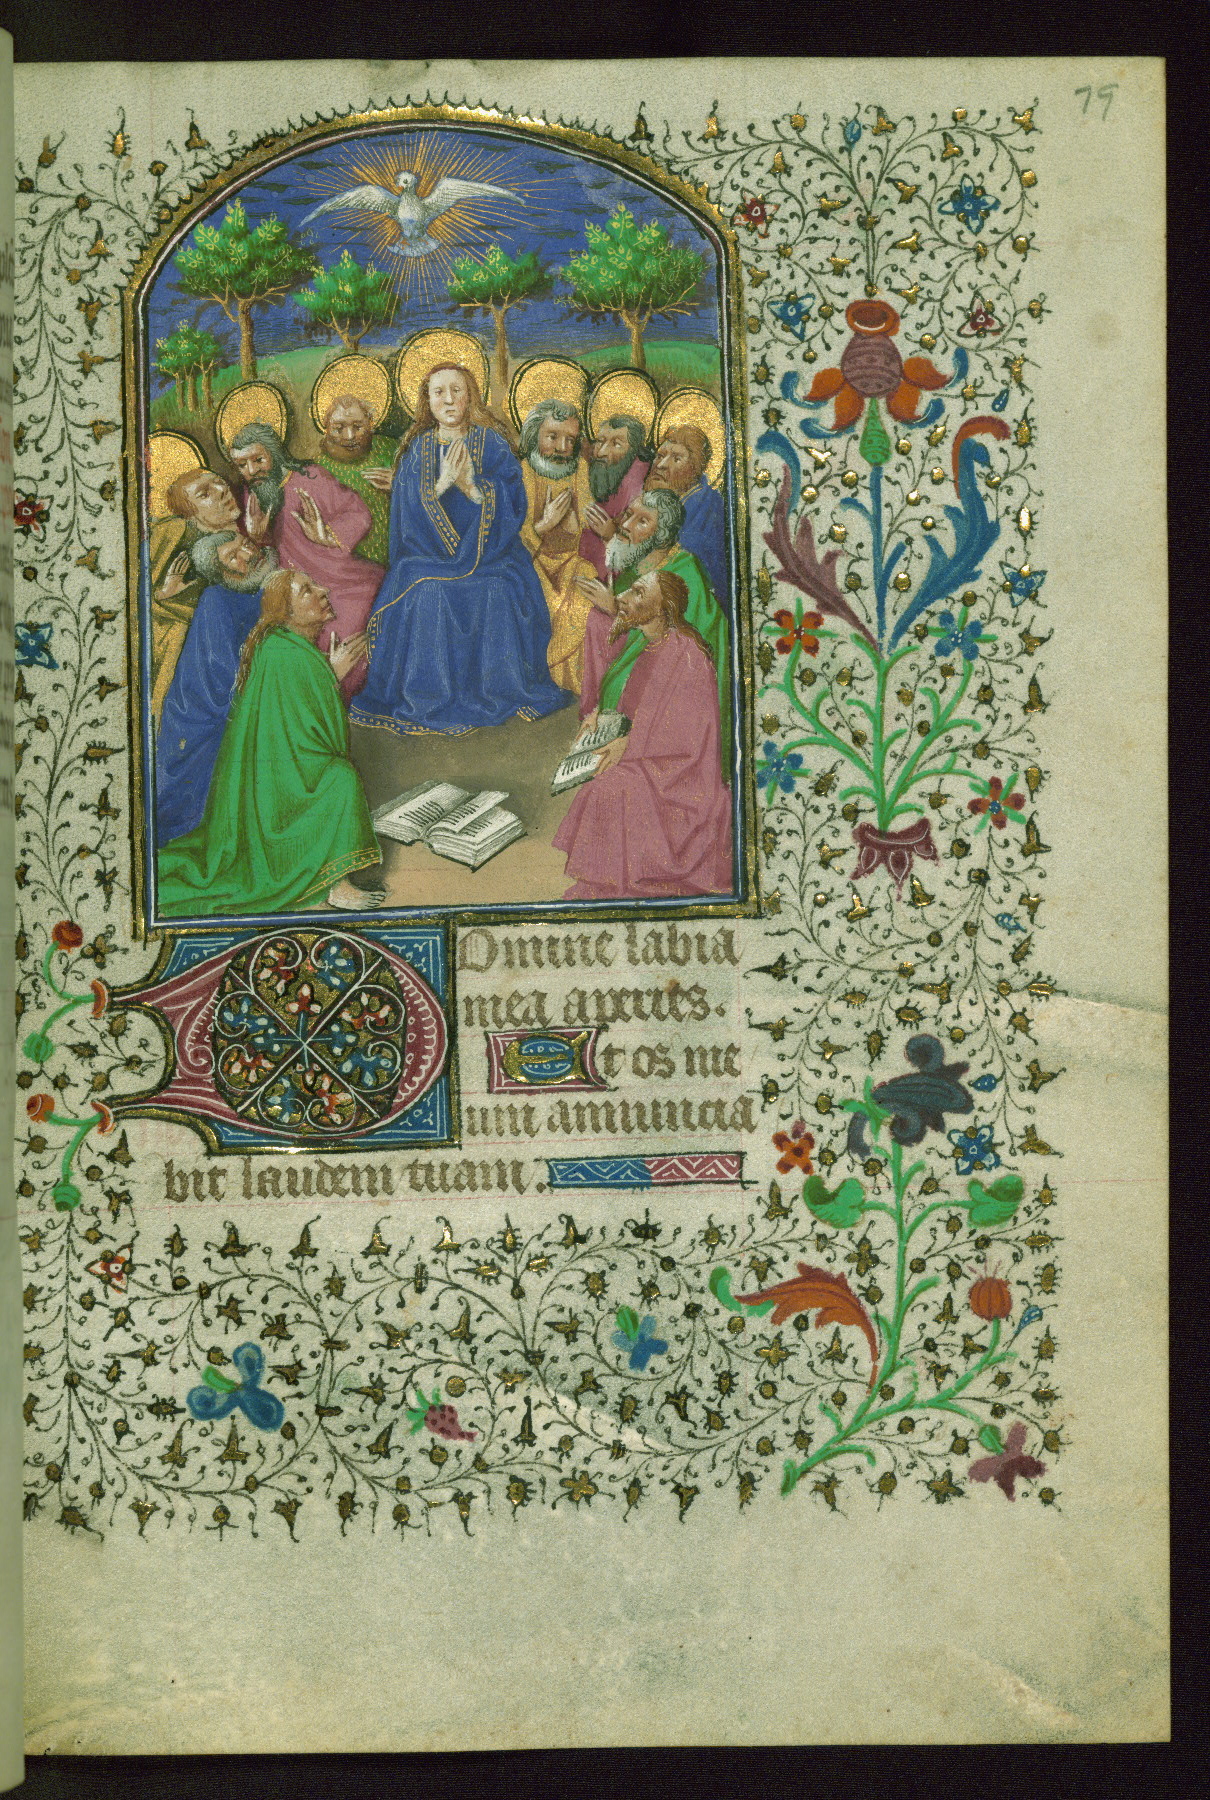 79
Domine labia
mea aperies.
Et os me
um annuncia
bit laudem tuam.